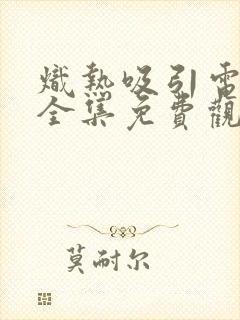 熾熱吸引電
全集免費觀
莫耐尔